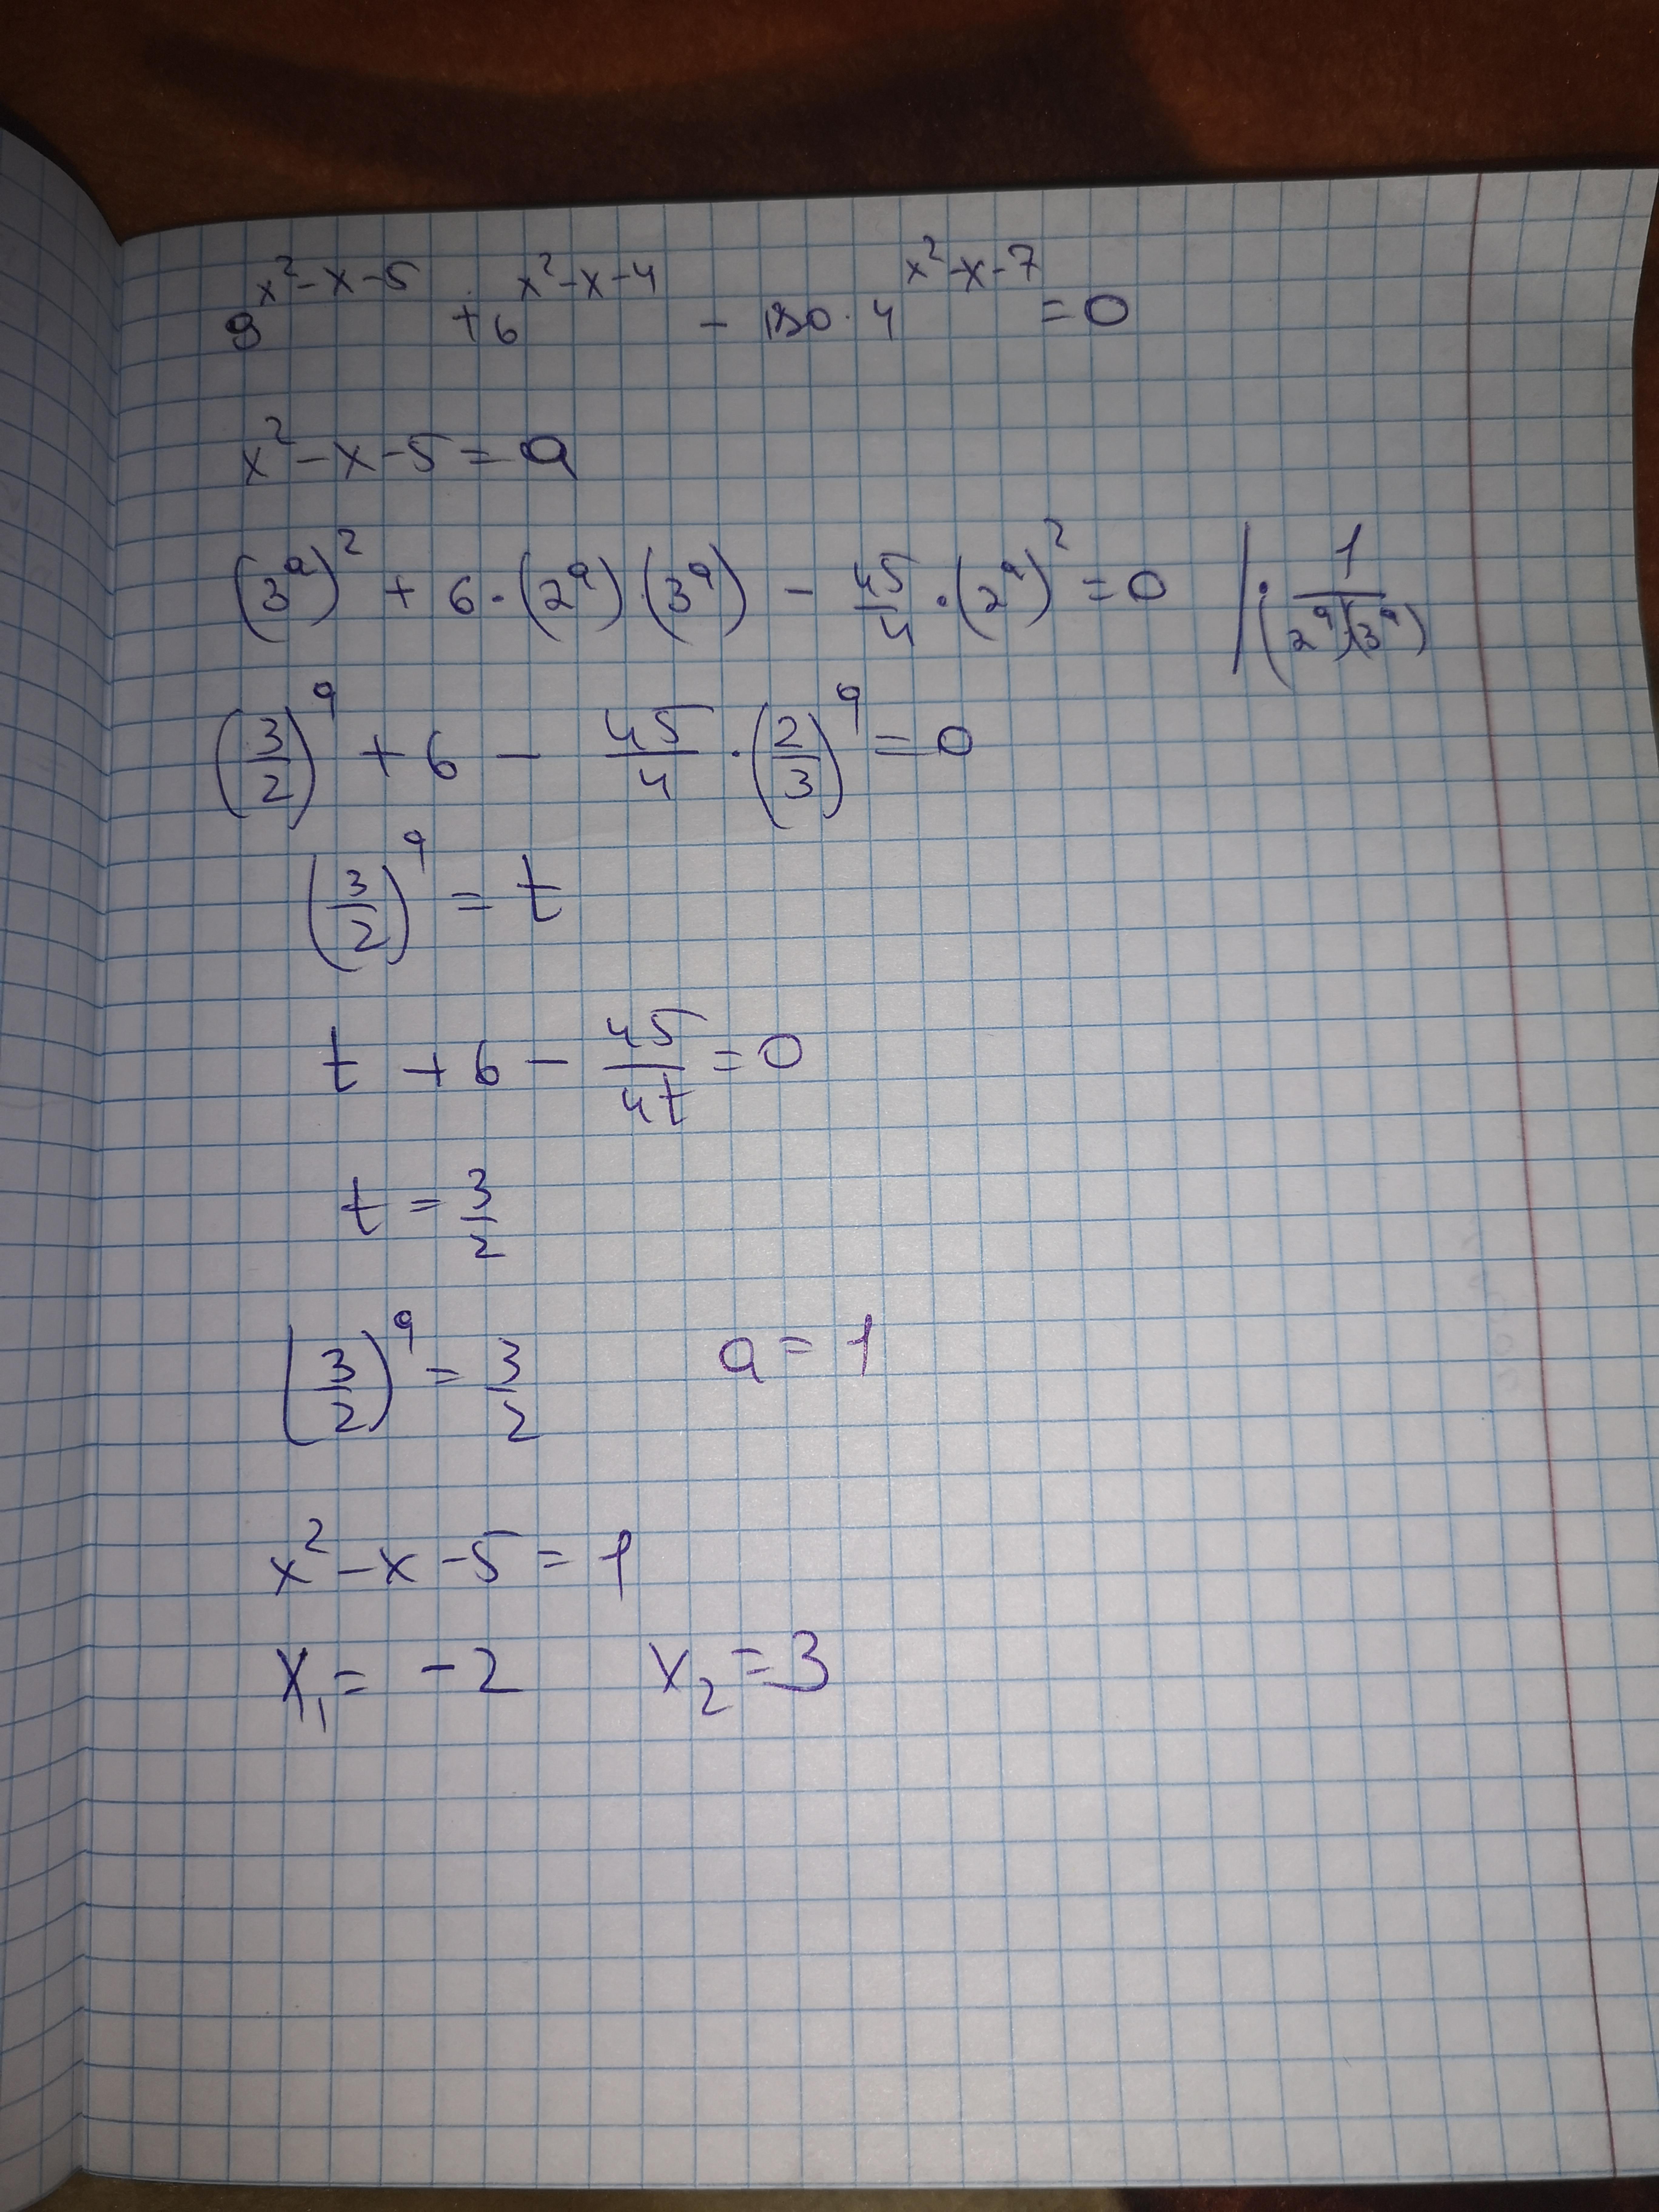 9^(x²-x-5) + 6^(x²-x-4) - 180·4^(x²-x-7) = 0
x²-x-5 = a
(3^a)² + 6·(2^a)·(3^a) - 45/4·(2^a)² = 0 |·1/((2^a)(3^a))
(3/2)^a + 6 - 45/4·(2/3)^a = 0
(3/2)^a = t
t + 6 - 45/4t = 0
t = 3/2
(3/2)^a = 3/2 a = 1
x²-x-5 = 1
x₁ = -2 x₂ = 3